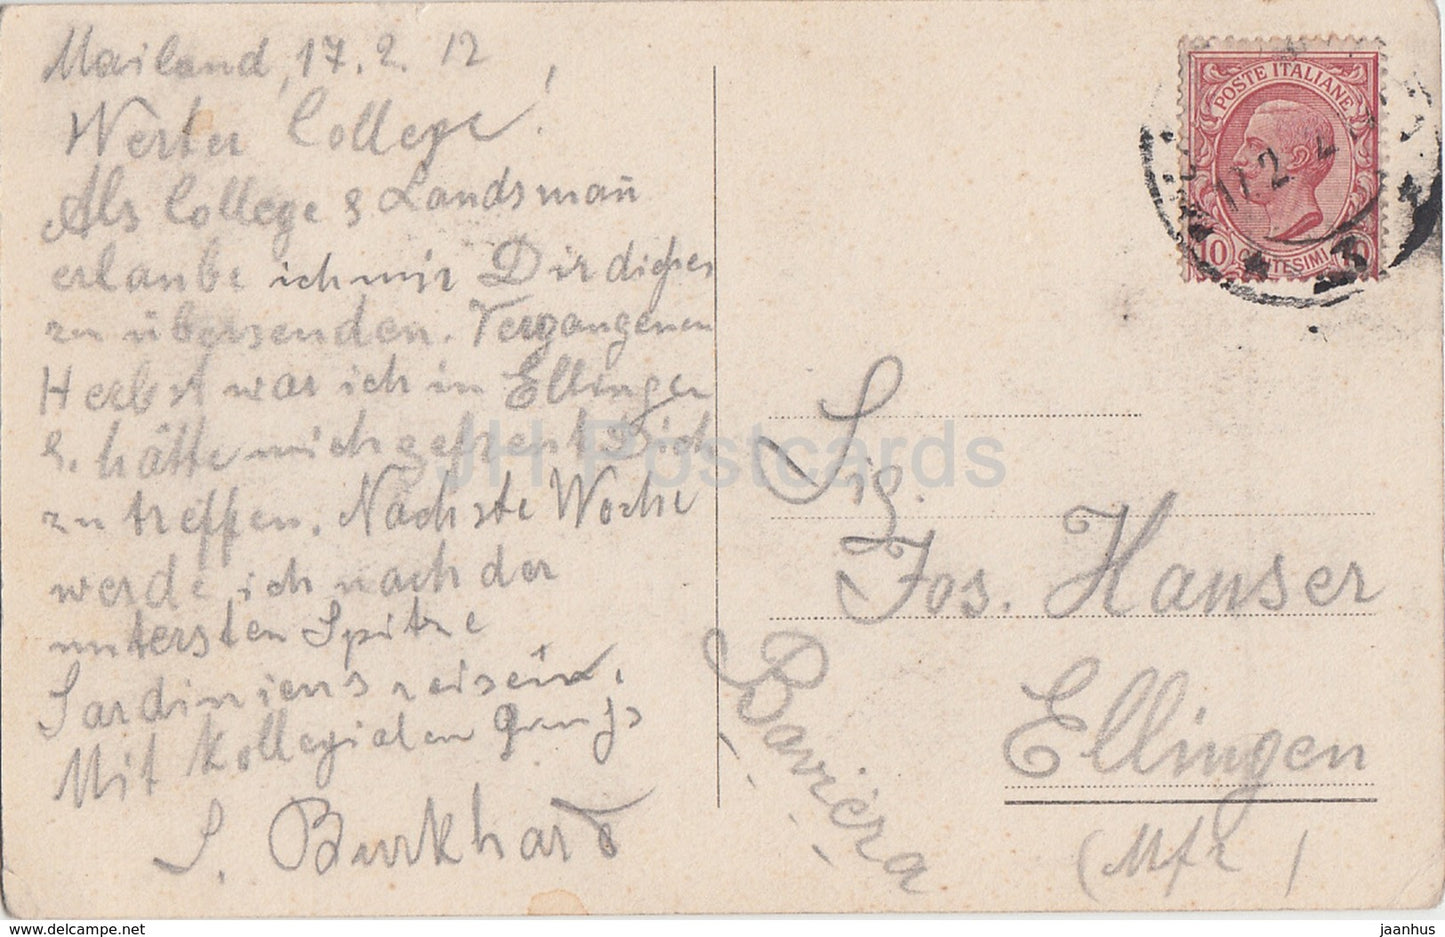 Mailand, 17. 2. 12
Werter College!
Als College & Landsmañ
erlaube ich mir Dir dieses
zu übersenden. Vergangenen
Herbst war ich in Ellingen
&. hätte mich gefreut Dich
zu treffen. Nächste Woche
werde ich nach der
untersten Spitze
Sardiniens reisen.
Mit kollegialem Gruß
S. Burkhard
POSTE ITALIANE
10 CENTESIMI 10
17.2.12
Sig.
Jos. Hauser
Ellingen
(Mfr)
Baviera
JH Postcards
jaanhus